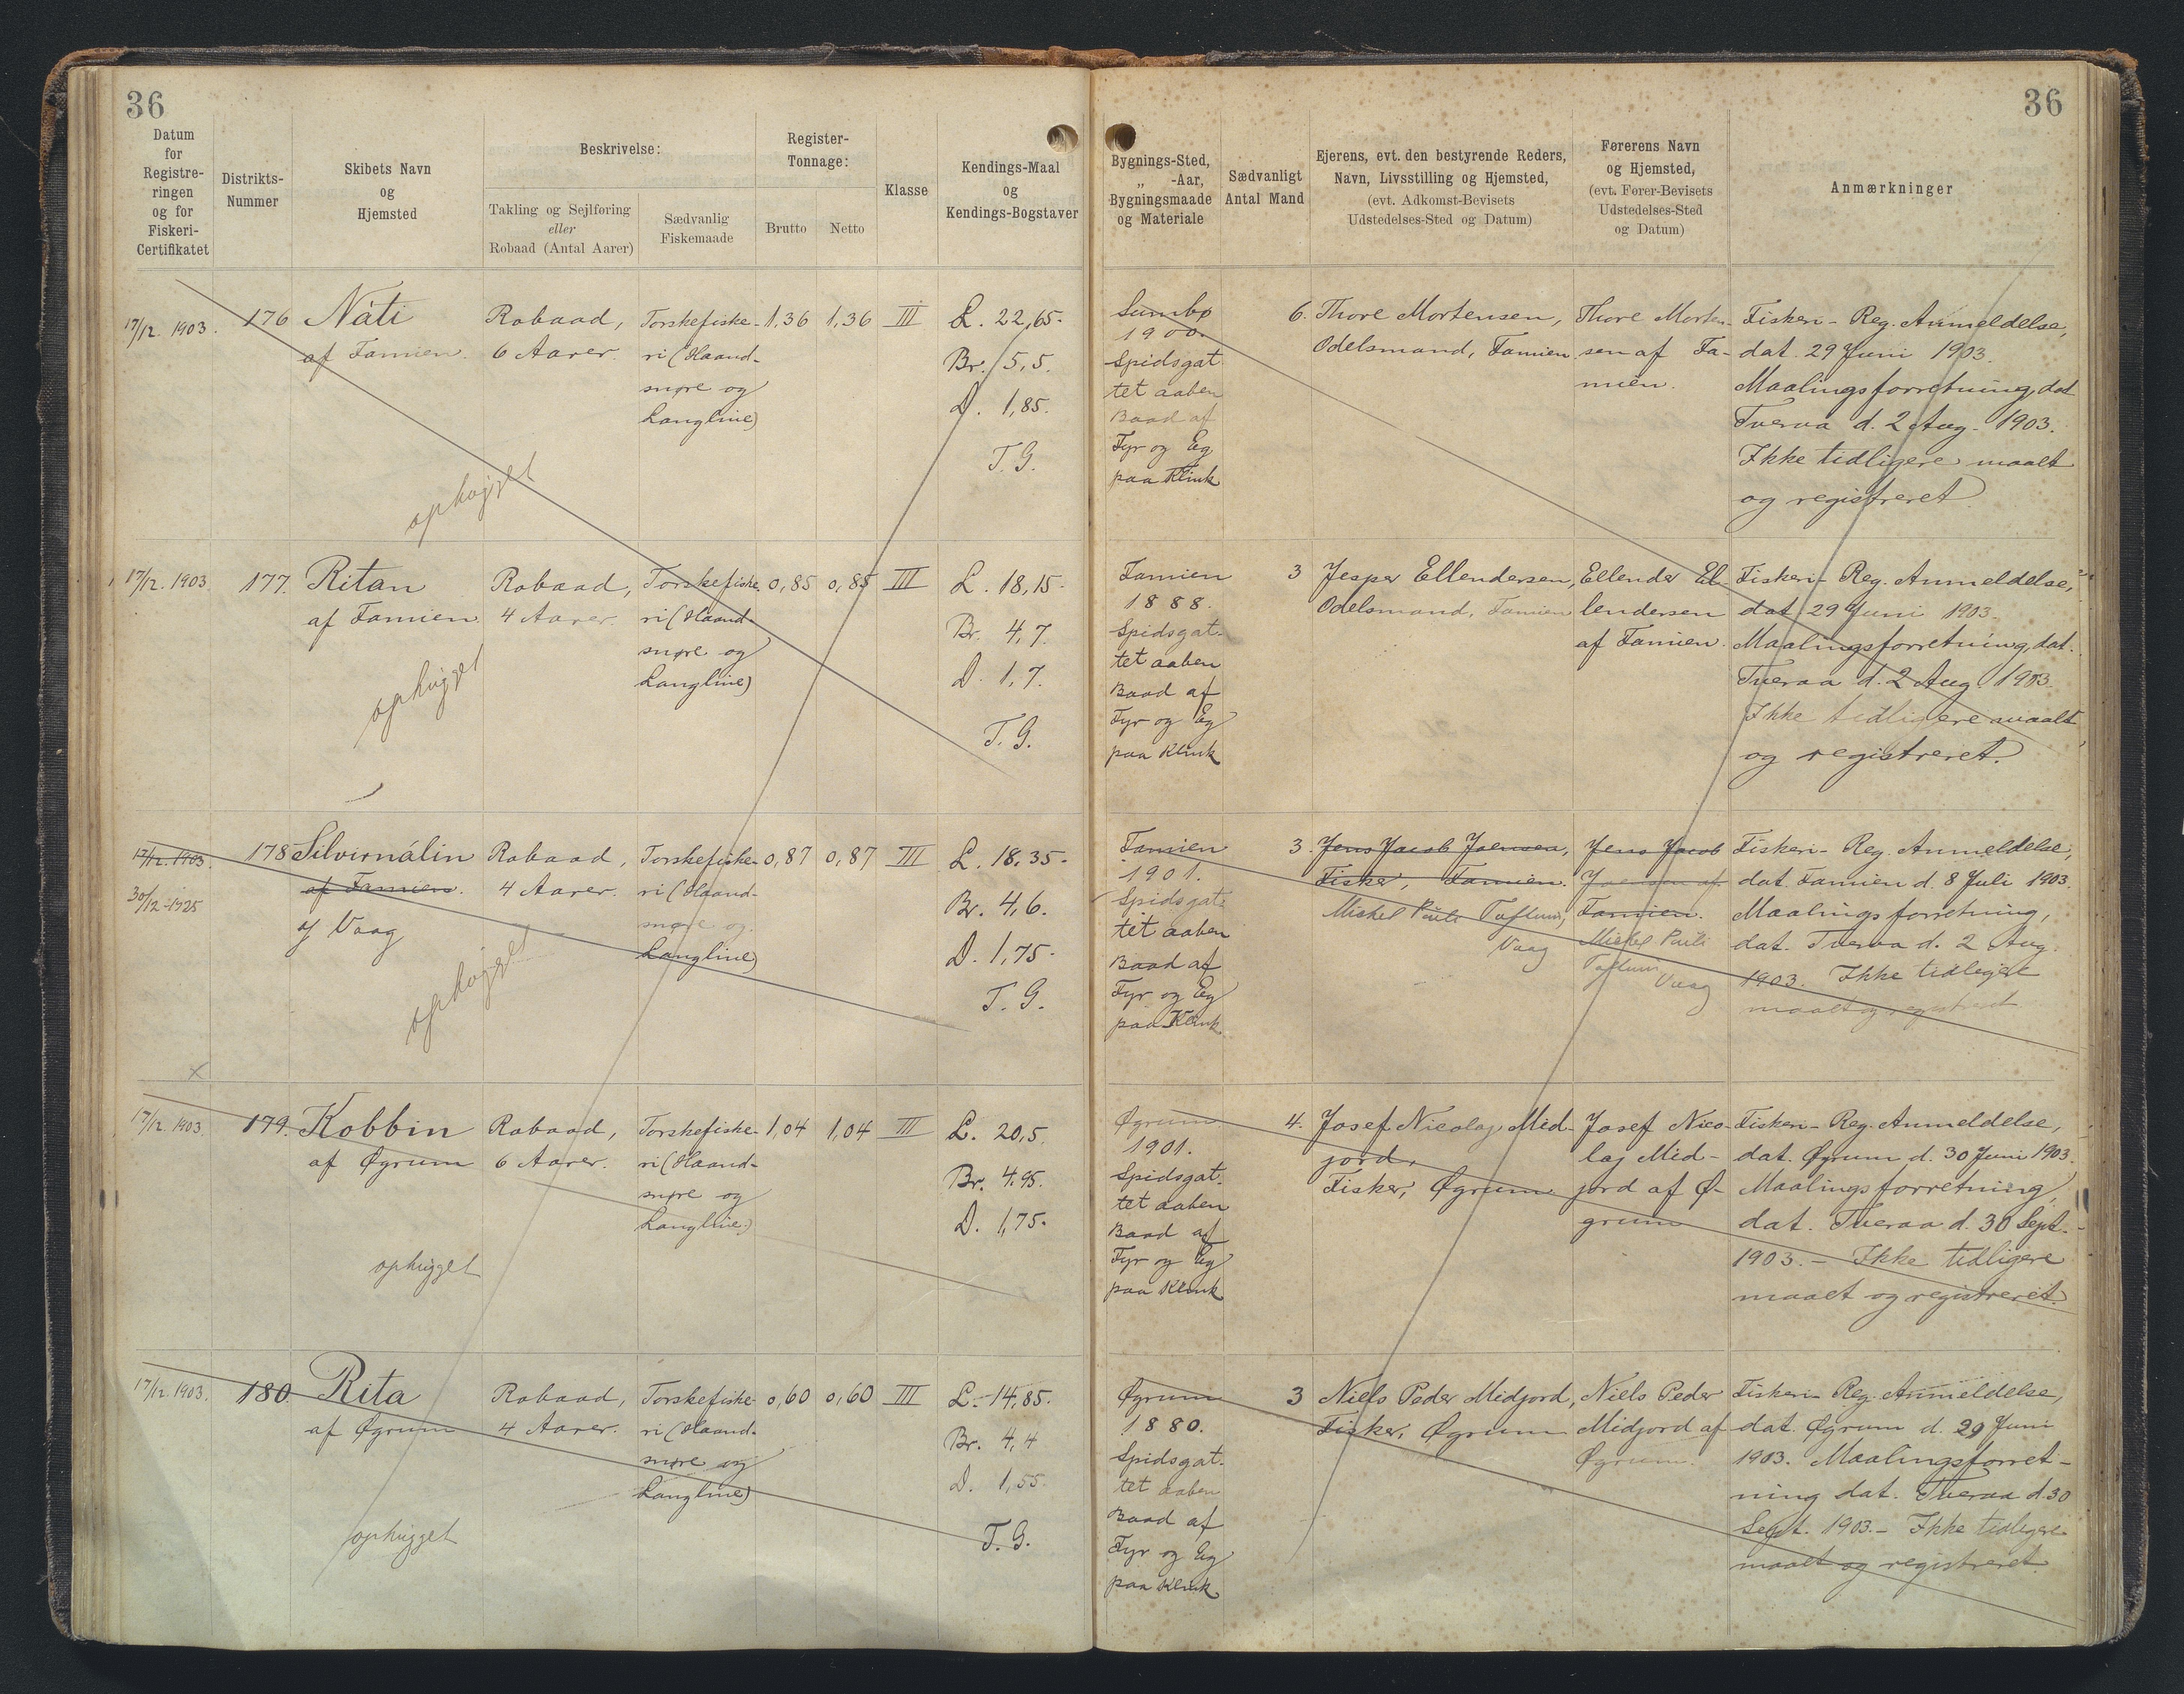 36
36
Datum
for
Registre-
ringen
og for
Fiskeri-
Certifikatet
Distrikts-
Nummer
Skibets Navn
og
Hjemsted
Beskrivelse:
Takling og Sejlføring
eller
Robaad (Antal Aarer)
Sædvanlig
Fiskemaade
Register-
Tonnage:
Brutto
Netto
Klasse
Kendings-Maal
og
Kendings-Bogstaver
Bygnings-Sted,
„ -Aar,
Bygningsmaade
og Materiale
Sædvanligt
Antal Mand
Ejerens, evt. den bestyrende Reders,
Navn, Livsstilling og Hjemsted,
(evt. Adkomst-Bevisets
Udstedelses-Sted og Datum)
Førerens Navn
og Hjemsted,
(evt. Fører-Bevisets
Udstedelses-Sted
og Datum)
Anmærkninger
17/12. 1903.
176
Náti
af Famien.
ophugget
Robaad,
6 Aarer.
Torskefiske-
ri (Haand-
snøre og
Langline)
1,36
1,36
III
L. 22,65.
Br. 5,5.
D. 1,85.
T. G.
Sumbø
1900.
Spidsgat-
tet aaben
Baad af
Fyr og Eg
paa Klink
6.
Thore Mortensen,
Odelsmand, Famien
Thore Morten-
sen af Fa-
mien.
Fiskeri-Reg. Anmeldelse,
dat. 29 Juni 1903.
Maalingsforretning, dat
Tveraa d. 2 Aug. 1903.
Ikke tidligere maalt
og registreret
17/12. 1903
177.
Ritan
af Famien
ophugget
Robaad,
4 Aarer.
Torskefiske-
ri (Haand-
snøre og
Langline)
0,85
0,85
III
L. 18,15.
Br. 4,7.
D. 1,7.
T. G.
Famien
1888.
Spidsgat-
tet aaben
Baad af
Fyr og Eg
paa Klink
3
Jesper Ellendersen,
Odelsmand, Famien
Ellender El-
lendersen
af Famien.
Fiskeri-Reg. Anmeldelse,
dat. 29 Juni 1903.
Maalingsforretning, dat.
Tveraa d. 2 Aug. 1903.
Ikke tidligere maalt
og registreret.
17/12. 1903
30/12-1925
178
Silvirnálin
af Famien.
af Vaag
ophugget
Robaad,
4 Aarer.
Torskefiske-
ri (Haand-
snøre og
Langline)
0,87
0,87
III
L. 18,35.
Br. 4,6.
D. 1,75.
T. G.
Famien
1901.
Spidsgat-
tet aaben
Baad af
Fyr og Eg
paa Klink
3.
Jens Jacob Joensen,
Fisker, Famien.
Mickel Pauli
Vaag
Jens Jacob
Joensen af
Famien.
Mickel Pauli
Vaag
Fiskeri-Reg. Anmeldelse,
dat. Famien d. 8 Juli 1903.
Maalingsforretning,
dat. Tveraa d. 2 Aug.
1903. Ikke tidligere
maalt og registreret
x
17/12. 1903.
179.
Kobbin
af Øgrum
ophugget
Robaad,
6 Aarer.
Torskefiske-
ri (Haand-
snøre og
Langline.)
1,04
1,04
III
L. 20,5.
Br. 4.95.
D. 1,75.
Øgrum.
1901.
Spidsgat-
tet aaben
Baad af
Fyr og Eg
paa Klink
4.
Josef Nicolaj Mid-
jord,
Fisker, Øgrum
Josef Nico-
laj Mid-
jord af Ø-
grum
Fiskeri-Reg. Anmeldelse,
dat. Øgrum d. 30 Juni 1903.
Maalingsforretning,
dat. Tveraa d. 30 Sept.
1903. – Ikke tidligere
maalt og registreret.
17/12. 1903.
180.
Rita
af Øgrum
ophugget
Robaad,
4 Aarer.
Torskefiske-
ri (Haand-
snøre og
Langline)
0,60
0,60
III
L. 14,85.
Br. 4,4
D. 1,55.
T. G.
Øgrum
1880.
Spidsgat-
tet aaben
Baad af
Fyr og Eg
paa Klink
3
Niels Peder Midjord,
Fisker, Øgrum
Niels Peder
Midjord af
Øgrum.
Fiskeri-Reg. Anmeldelse,
dat. Øgrum d. 29 Juni
1903. Maalingsforret-
ning dat. Tveraa d. 30
Sept. 1903. – Ikke tidligere
maalt og registreret.